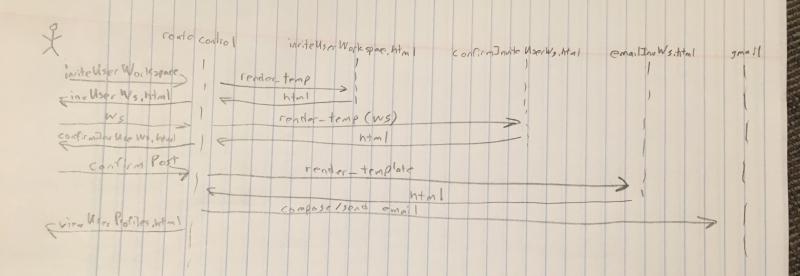 route control
inviteUserWorkspae.html
confirmInviteUserWs.html
emailInvWs.html
gmail
inviteUserWorkspace
render_temp
invUserWs.html
html
WS
render-temp (ws)
confirmInvUserWs.html
html
confirm Post
render_template
html
compose/send email
viewUserProfiles.html